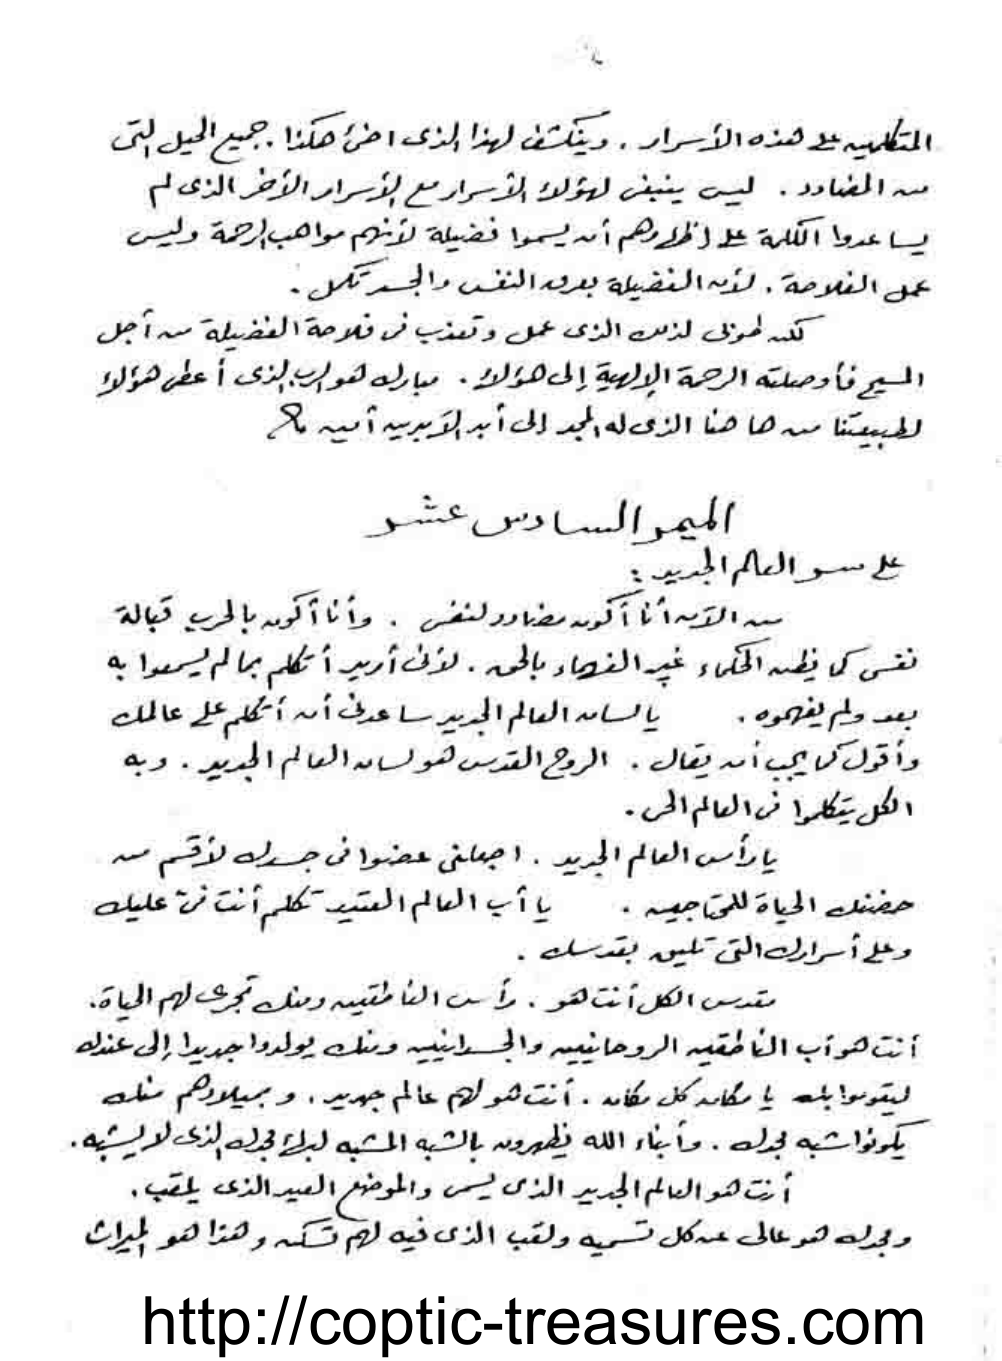 المتكلمين على هذه الأسرار . وينكشف لهذا الذى اخفى هكذا . جميع الحيل التى
من المضادد . ليس ينبغى لهؤلاء الأسرار مع الأسرار الأخر الذى لم
يساعدوا الكلمة على إظهارهم أن يسموا فضيلة لأنهم مواهب الرحمة وليس
عمل الفلاحة . لأن الفضيلة بعرق النفس والجسد تكمل .
لكن طوبى لذلك الذى عمل وتعذب فى فلاحة الفضيلة من أجل
المسيح فأوصلته الرحمة الإلهية إلى هؤلاء . مبارك هو الرب الذى أعطى هؤلاء
لطبيعتنا من ها هنا الذى له المجد إلى أبد الآبدين أمين
الميمر السادس عشر
على سر العالم الجديد :
من الآن أنا أكون مضادد لنفسى . وأنا أكون بالحرب قبالة
نفسى كما يظن الحكماء غير الفهماء بالحق . لأنى أريد أتكلم بما لم يسمعوا به
بعد ولم يفهموه . يا لسان العالم الجديد ساعدنى أن أتكلم على عالمك
وأقول كما يجب أن يقال . الروح القدس هو لسان العالم الجديد . وبه
الكل يتكلموا فى العالم الحى .
يا رأس العالم الجديد . اجعلنى عضوا فى جسدك لأقسم من
حضنك الحياة للمحتاجين . يا أب العالم العتيد تكلم أنت فىّ عليك
وعلى أسرارك التى تليق بقدسك .
مقدس الكل أنت هو . رأس الناطقين ومنك تجرى لهم الحياة .
أنت هو أب الناطقين الروحانيين والجسدانيين ومنك يولدوا جديدا إلى عندك
ليقوموا بك يا مكان كل مكان . أنت هو لهم عالم جديد . وبميلادهم منك
يكونوا شبه مجدك . وأبناء الله يظهرون بالشبه المشبه لبهاء مجدك الذى لا يشبه .
أنت هو العالم الجديد الذى يسمى والموضع الغير الذى يلقب .
ومجدك هو عالى عن كل تسميه ولقب الذى فيه لهم تسكن وهذا هو الميراث
http://coptic-treasures.com